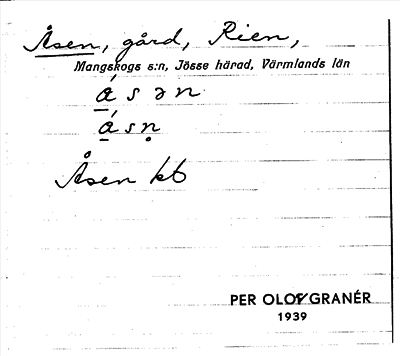 Åsen, gård, Rien,
Mangskogs s:n, Jösse härad, Värmlands län
á̱ s ə n
á̱ s ṇ
Åsen kb
PER OLOF GRANÉR
1939